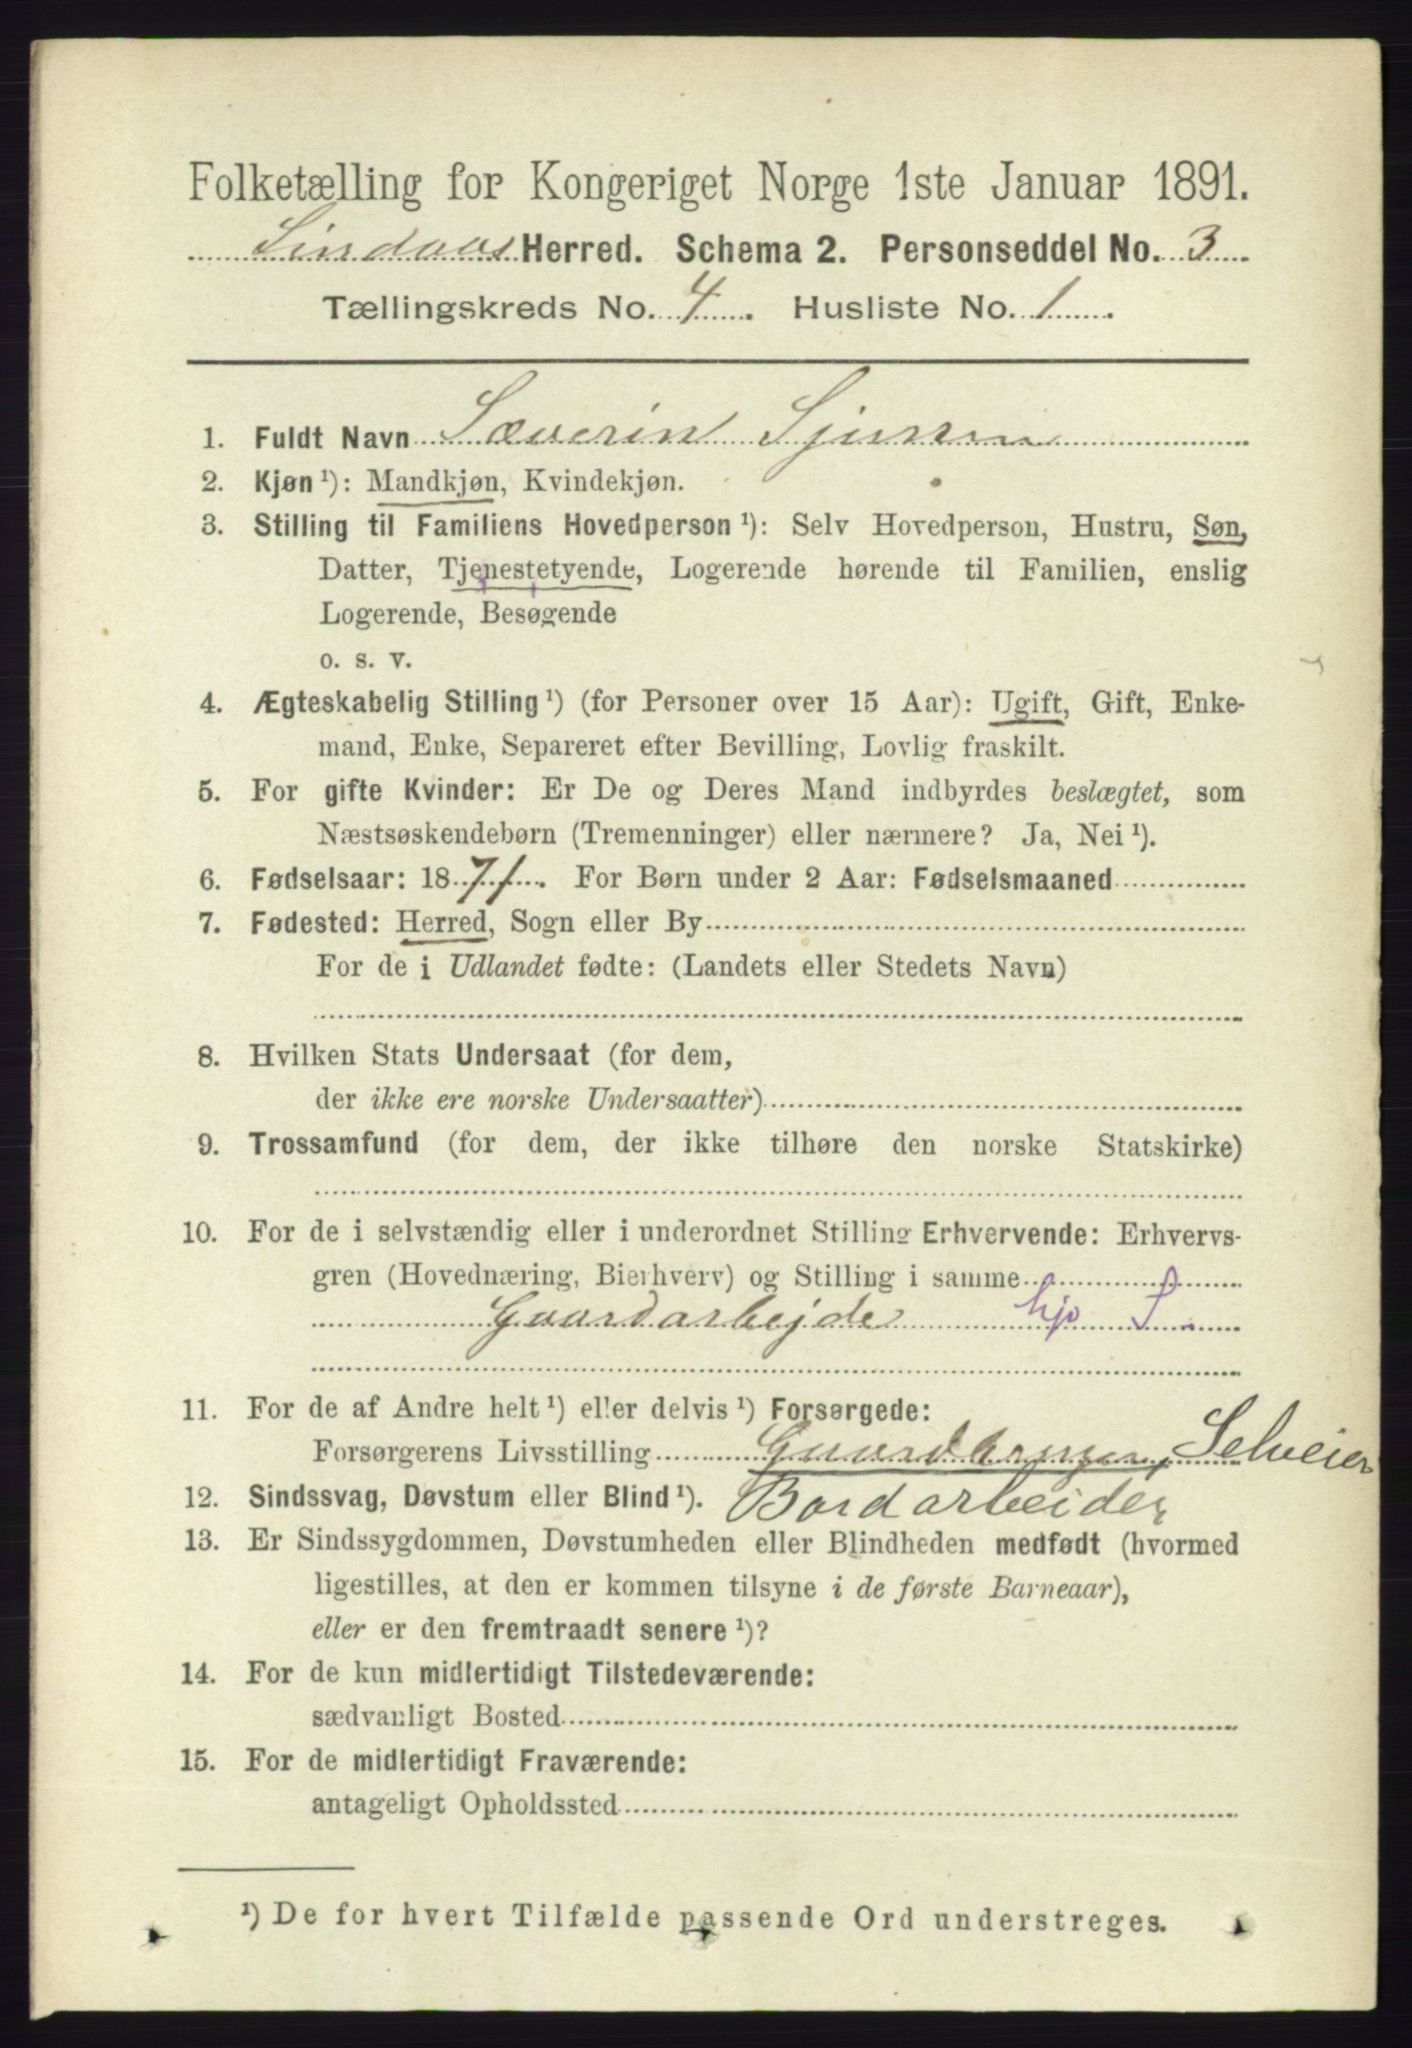 Folketælling for Kongeriget Norge 1ste Januar 1891.
Lindaas Herred. Schema 2. Personseddel No. 3
Tællingskreds No. 4. Husliste No. 1.
1. Fuldt Navn Sæverin Sjursen
2. Kjøn ¹): Mandkjøn, Kvindekjøn.
3. Stilling til Familiens Hovedperson ¹): Selv Hovedperson, Hustru, Søn,
Datter, Tjenestetyende, Logerende hørende til Familien, enslig
Logerende, Besøgende
o. s. v.
4. Ægteskabelig Stilling ¹) (for Personer over 15 Aar): Ugift, Gift, Enke-
mand, Enke, Separeret efter Bevilling, Lovlig fraskilt.
5. For gifte Kvinder: Er De og Deres Mand indbyrdes beslægtet, som
Næstsøskendebørn (Tremenninger) eller nærmere? Ja, Nei ¹).
6. Fødselsaar: 1871. For Børn under 2 Aar: Fødselsmaaned
7. Fødested: Herred, Sogn eller By
For de i Udlandet fødte: (Landets eller Stedets Navn)
8. Hvilken Stats Undersaat (for dem,
der ikke ere norske Undersaatter)
9. Trossamfund (for dem, der ikke tilhøre den norske Statskirke)
10. For de i selvstændig eller i underordnet Stilling Erhvervende: Erhvervs-
gren (Hovednæring, Bierhverv) og Stilling i samme
Gaardarbejde hjo F.
11. For de af Andre helt ¹) eller delvis ¹) Forsørgede:
Forsørgerens Livsstilling Gaardbruger, Selveier
12. Sindssvag, Døvstum eller Blind ¹). Bordarbeider
13. Er Sindssygdommen, Døvstumheden eller Blindheden medfødt (hvormed
ligestilles, at den er kommen tilsyne i de første Barneaar),
eller er den fremtraadt senere ¹)?
14. For de kun midlertidigt Tilstedeværende:
sædvanligt Bosted
15. For de midlertidigt Fraværende:
antageligt Opholdssted
¹) De for hvert Tilfælde passende Ord understreges.